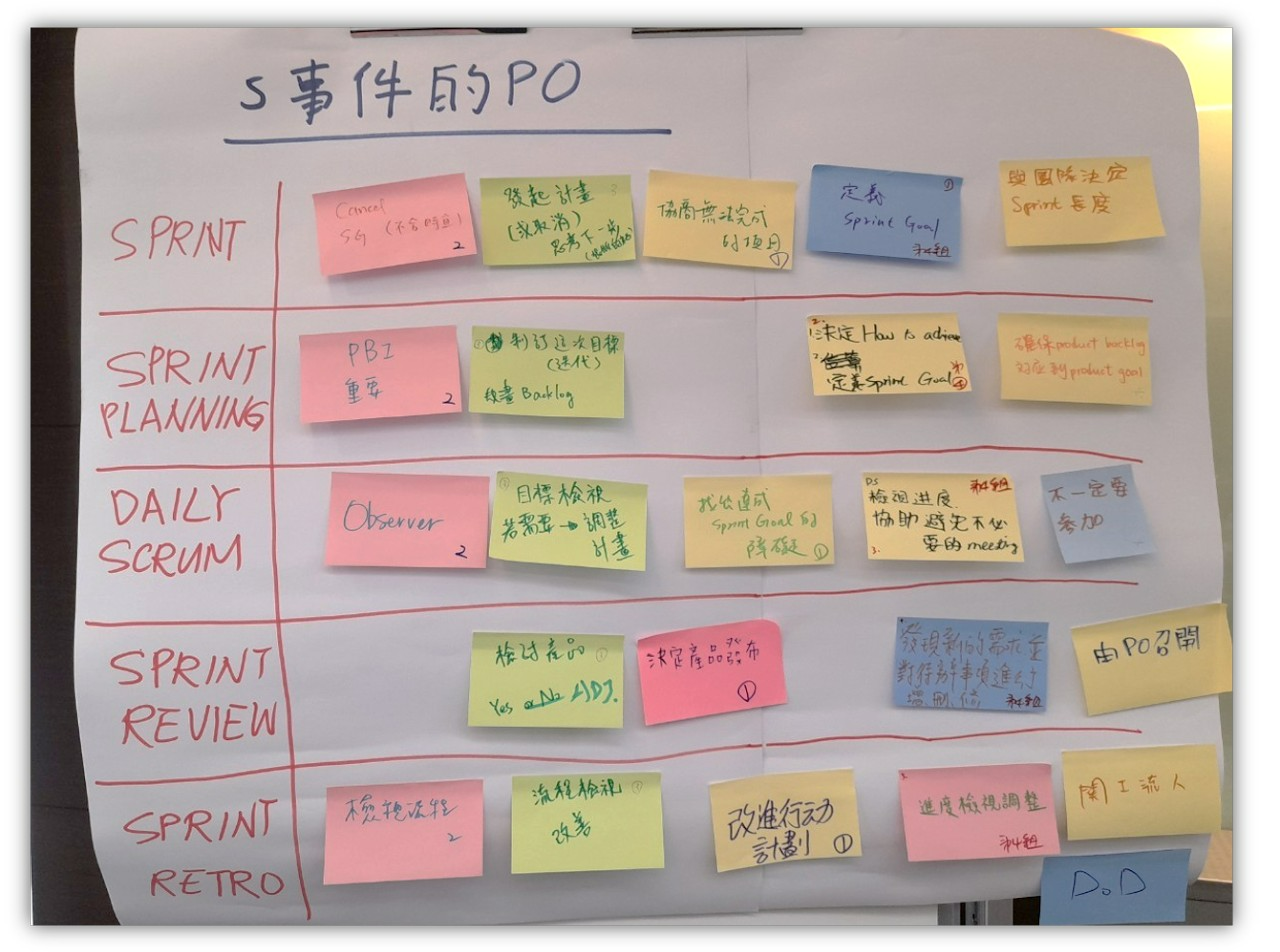 5事件的PO
SPRINT
Cancel
SG (不合時宜)
2
發起計畫
(或取消)
思考下一步
協商無法完成
的項目
①
定義
Sprint Goal
第4組
與團隊決定
Sprint 長度
SPRINT
PLANNING
PBI
重要
2
制訂這次目標
(迭代)
Backlog
2.
1.決定How to achieve
2.
定義Sprint Goal
確保product backlog
對應到product goal
DAILY
SCRUM
Observer
2
目標檢視
若需要→調整
計畫
找出達成
Sprint Goal 的
障礙 ①
DS
第4組
檢視進度
協助避免不必
要的meeting
3.
不一定要
參加
SPRINT
REVIEW
檢討產品
Yes or No
決定產品發布
①
發現新的需求並
對待辦事項進行
增、刪、修
第4組
由PO召開
SPRINT
RETRO
檢視流程
2
流程檢視
改善
改進行动
計劃 ①
進度檢視調整
第4組
関工流人
DoD